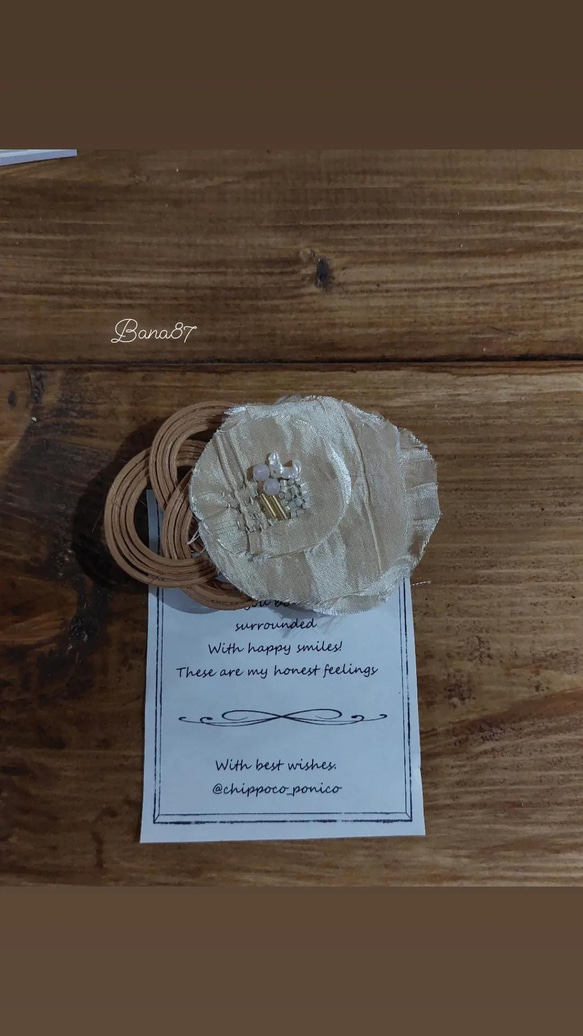 Bana87
surrounded
With happy smiles!
These are my honest feelings
With best wishes.
@chippoco_ponico